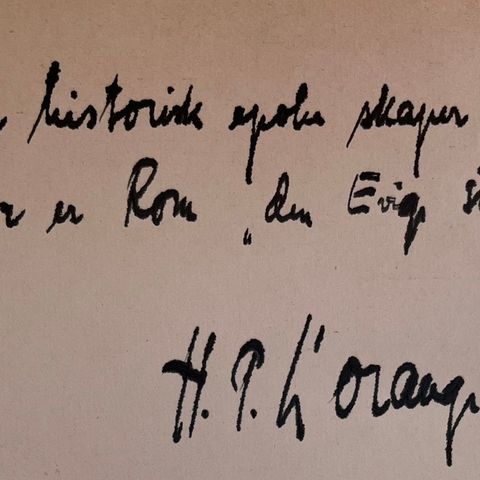 historisk epoke skaper
er Rom „den Evig
H. P. L'orang